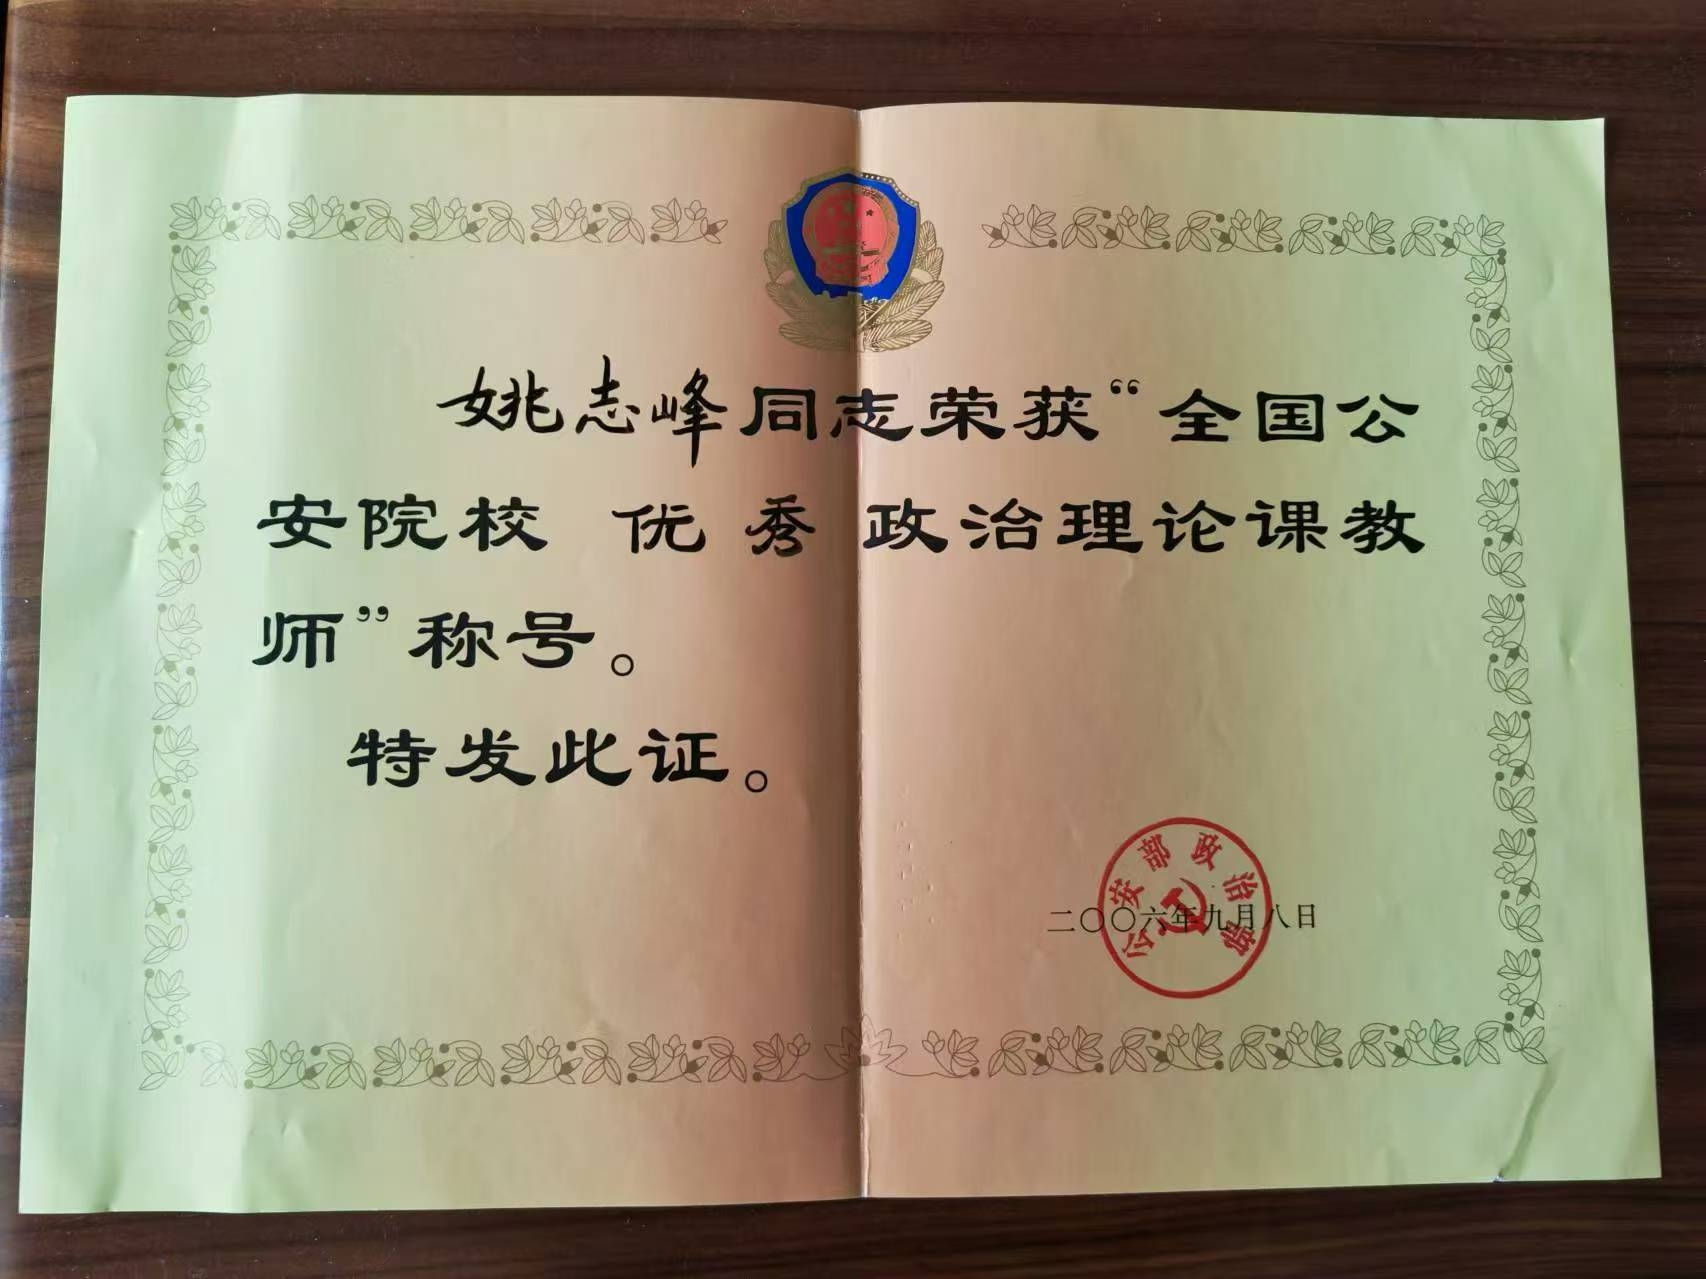 姚志峰同志荣获“全国公
安院校 优 秀 政治理论课教
师”称号。
特发此证。
公安部政治部
二〇〇六年九月八日